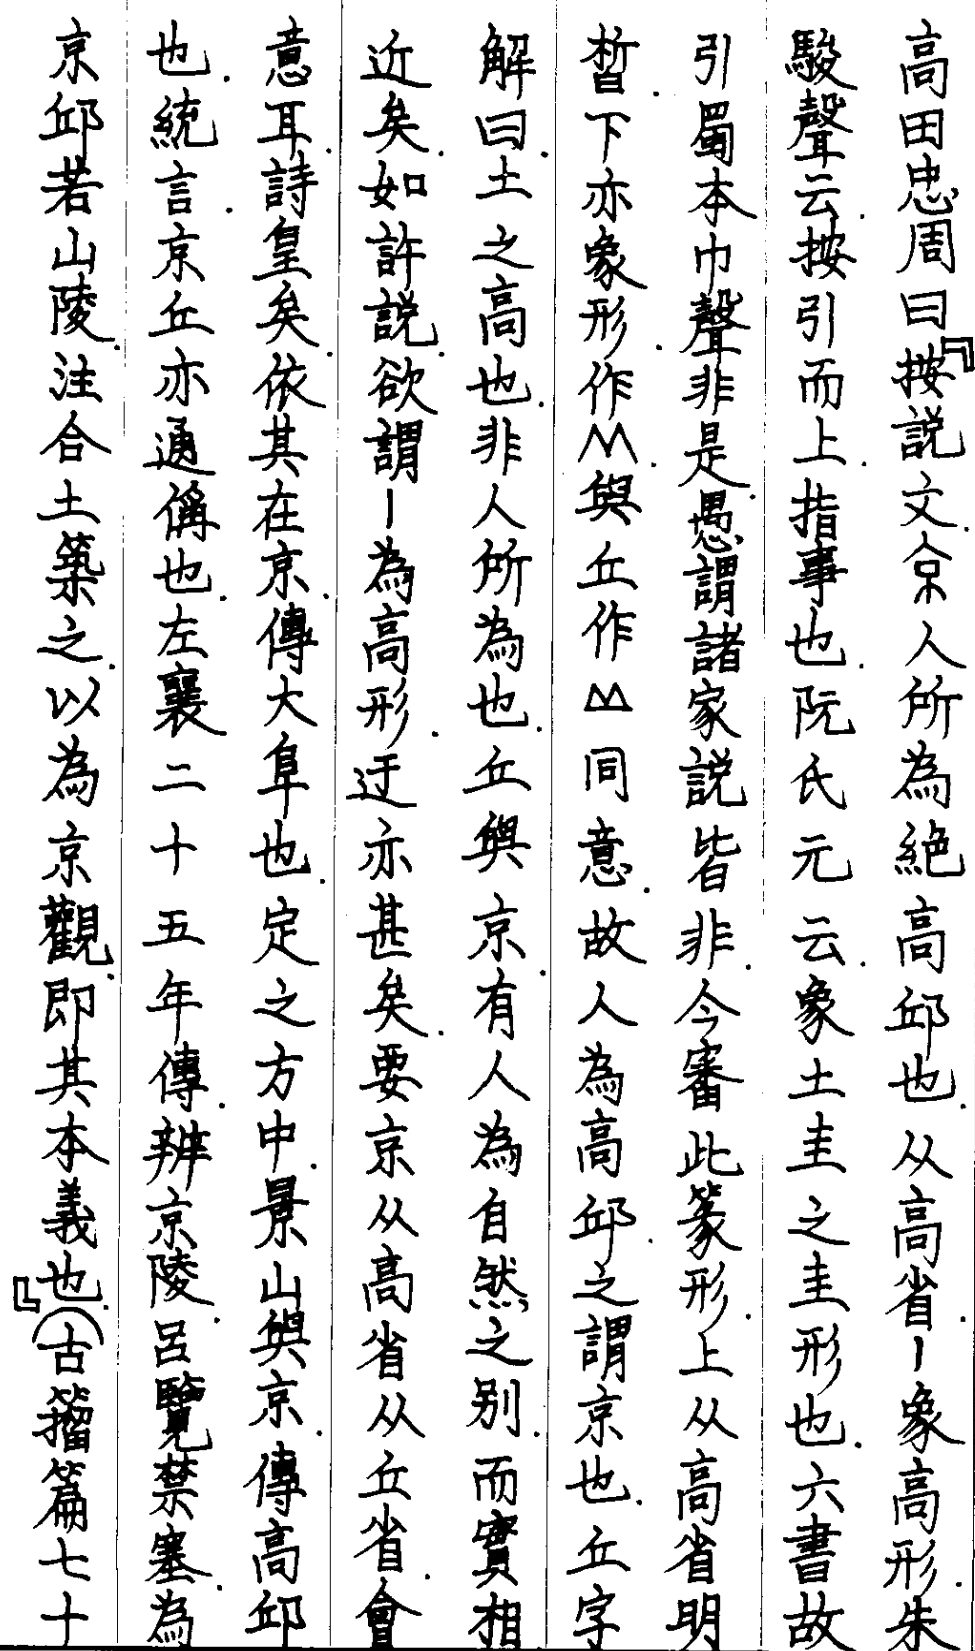 高田忠周曰『按説文京人所為絕高邱也.从高省丨象高形.朱
駿聲云.按引而上.指事也.阮氏元云.象土圭之圭形也.六書故
引蜀本巾聲非是.愚謂諸家説皆非.今審此篆形.上从高省明
晳.下亦象形.作𠁥.與丘作㐀同意.故人為高邱.之謂京也.丘字
解曰.土之高也.非人所為也.丘與京.有人為自然之别.而實相
近矣.如許説.欲謂丨為高形.迂亦甚矣.要京从高省从丘省.會
意耳.詩皇矣.依其在京.傳大阜也.定之方中.景山與京.傳高邱
也.統言.京丘亦通偁也.左襄二十五年傳.辨京陵.呂覽禁塞.為
京邱若山陵.注合土築之.以為京觀.即其本義也.』（古籀篇七十